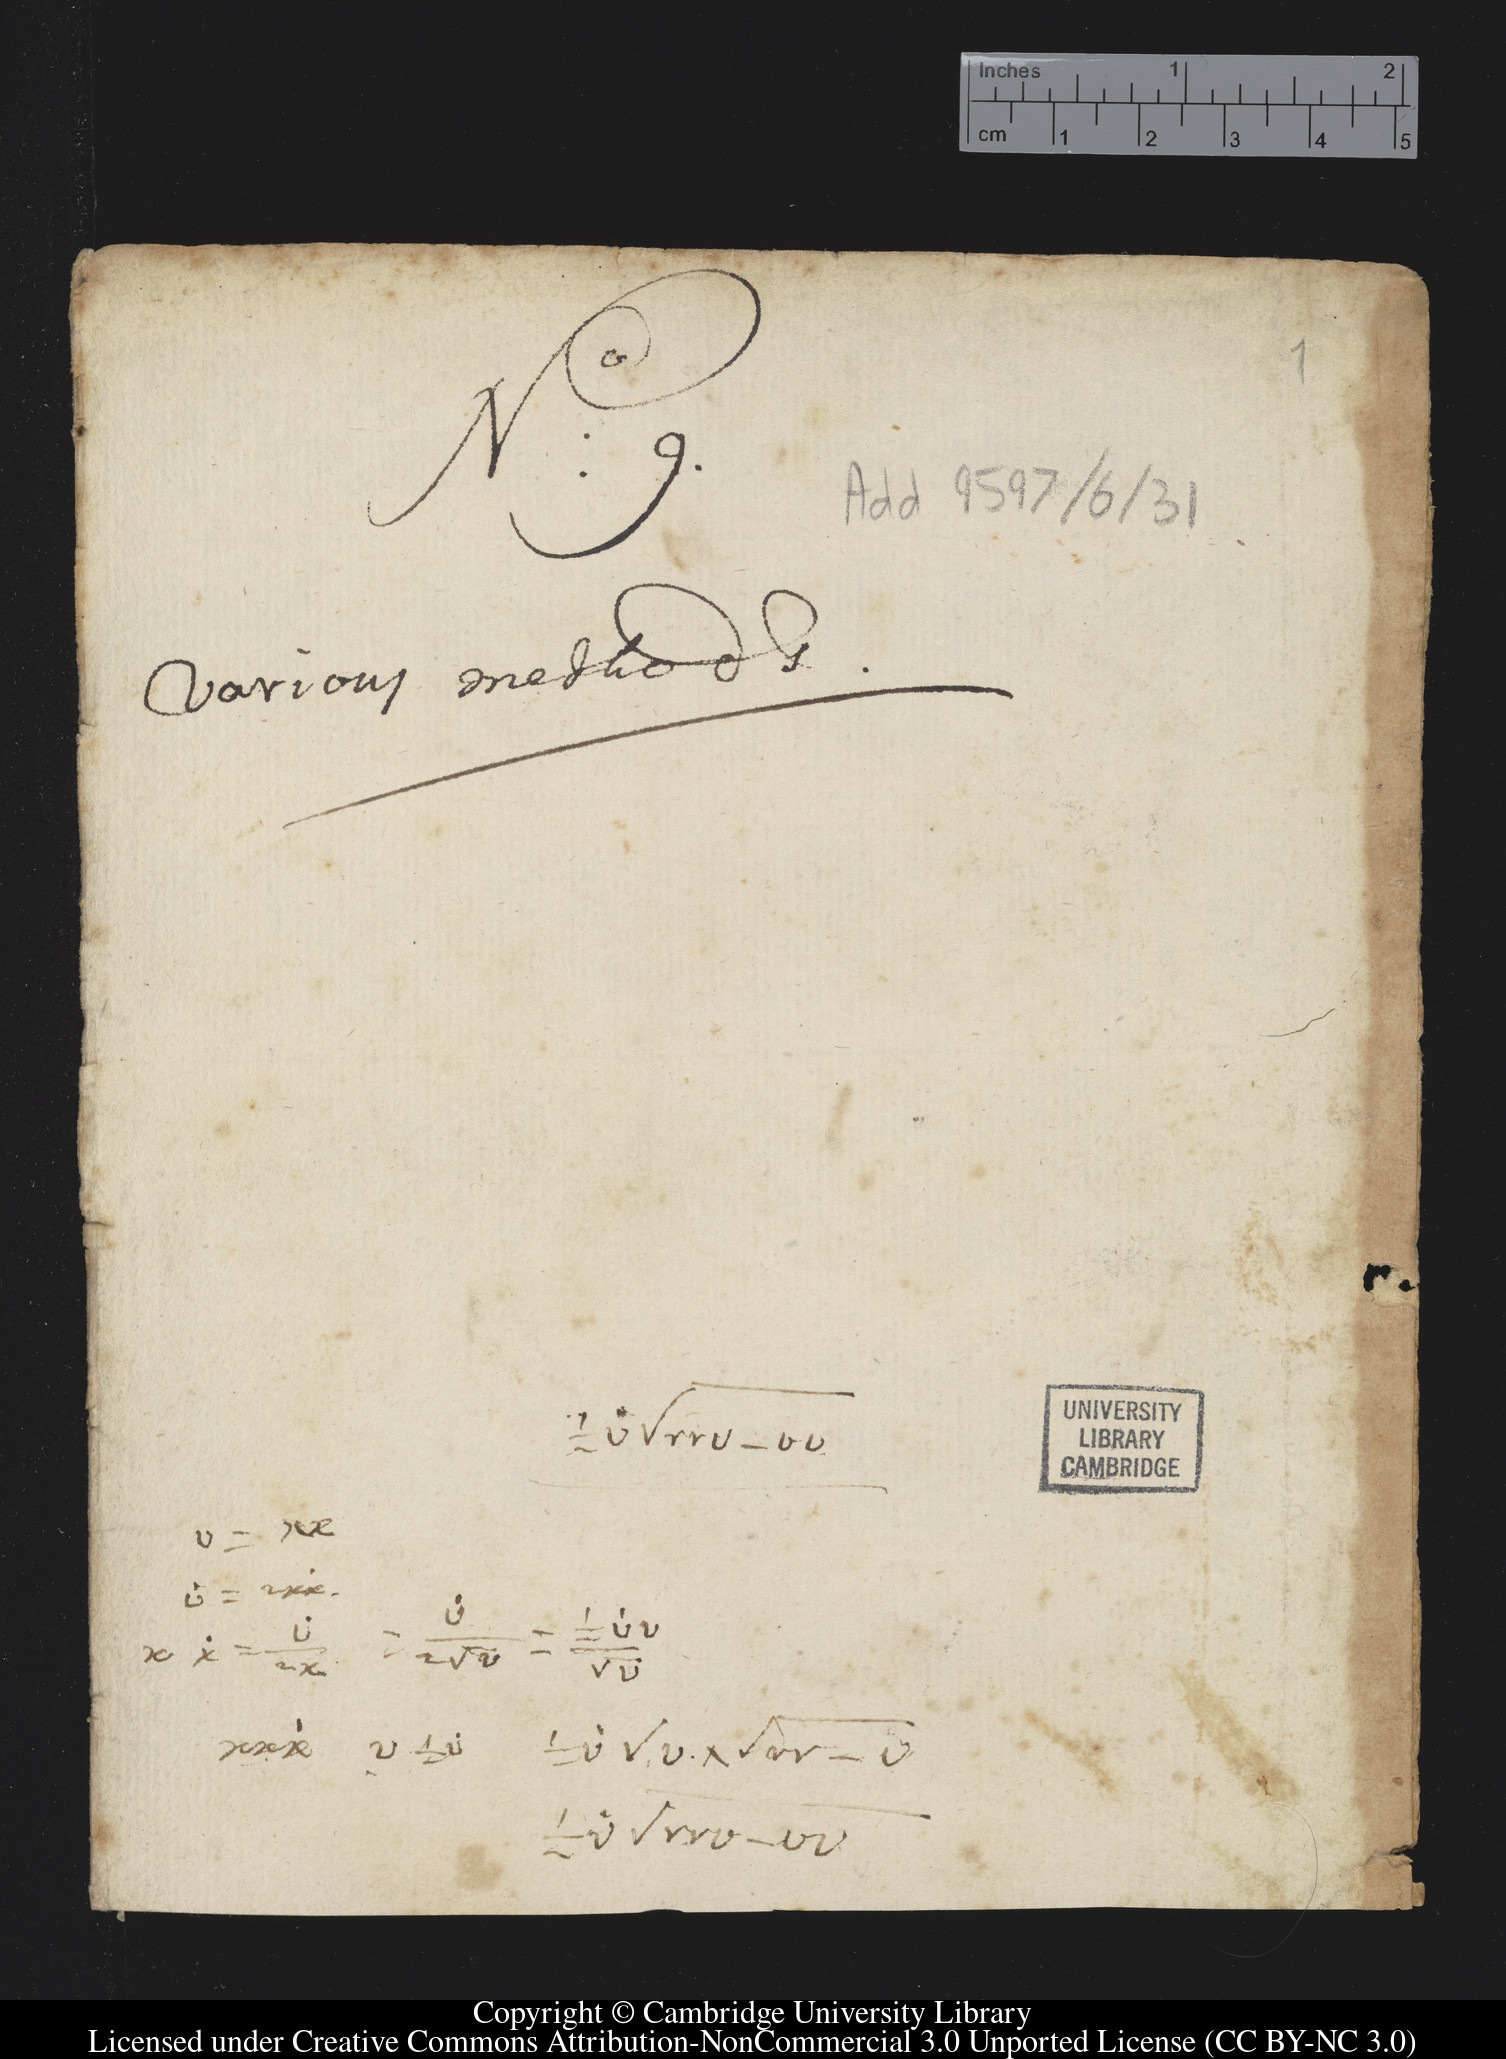 Inches 1 2
cm 1 2 3 4 5
1
No: 9.
Add 9597/6/31
Various methods.
½ v̇ √(rrv − vv)
UNIVERSITY
LIBRARY
CAMBRIDGE
v = xx
v̇ = 2xẋ.
x ẋ = v̇/2x = v̇/2√v = ½v̇v/√v
xxẋ v ½v̇ ½v̇√v × √(rr − v)
½v̇√(rrv − vv)
Copyright © Cambridge University Library
Licensed under Creative Commons Attribution-NonCommercial 3.0 Unported License (CC BY-NC 3.0)